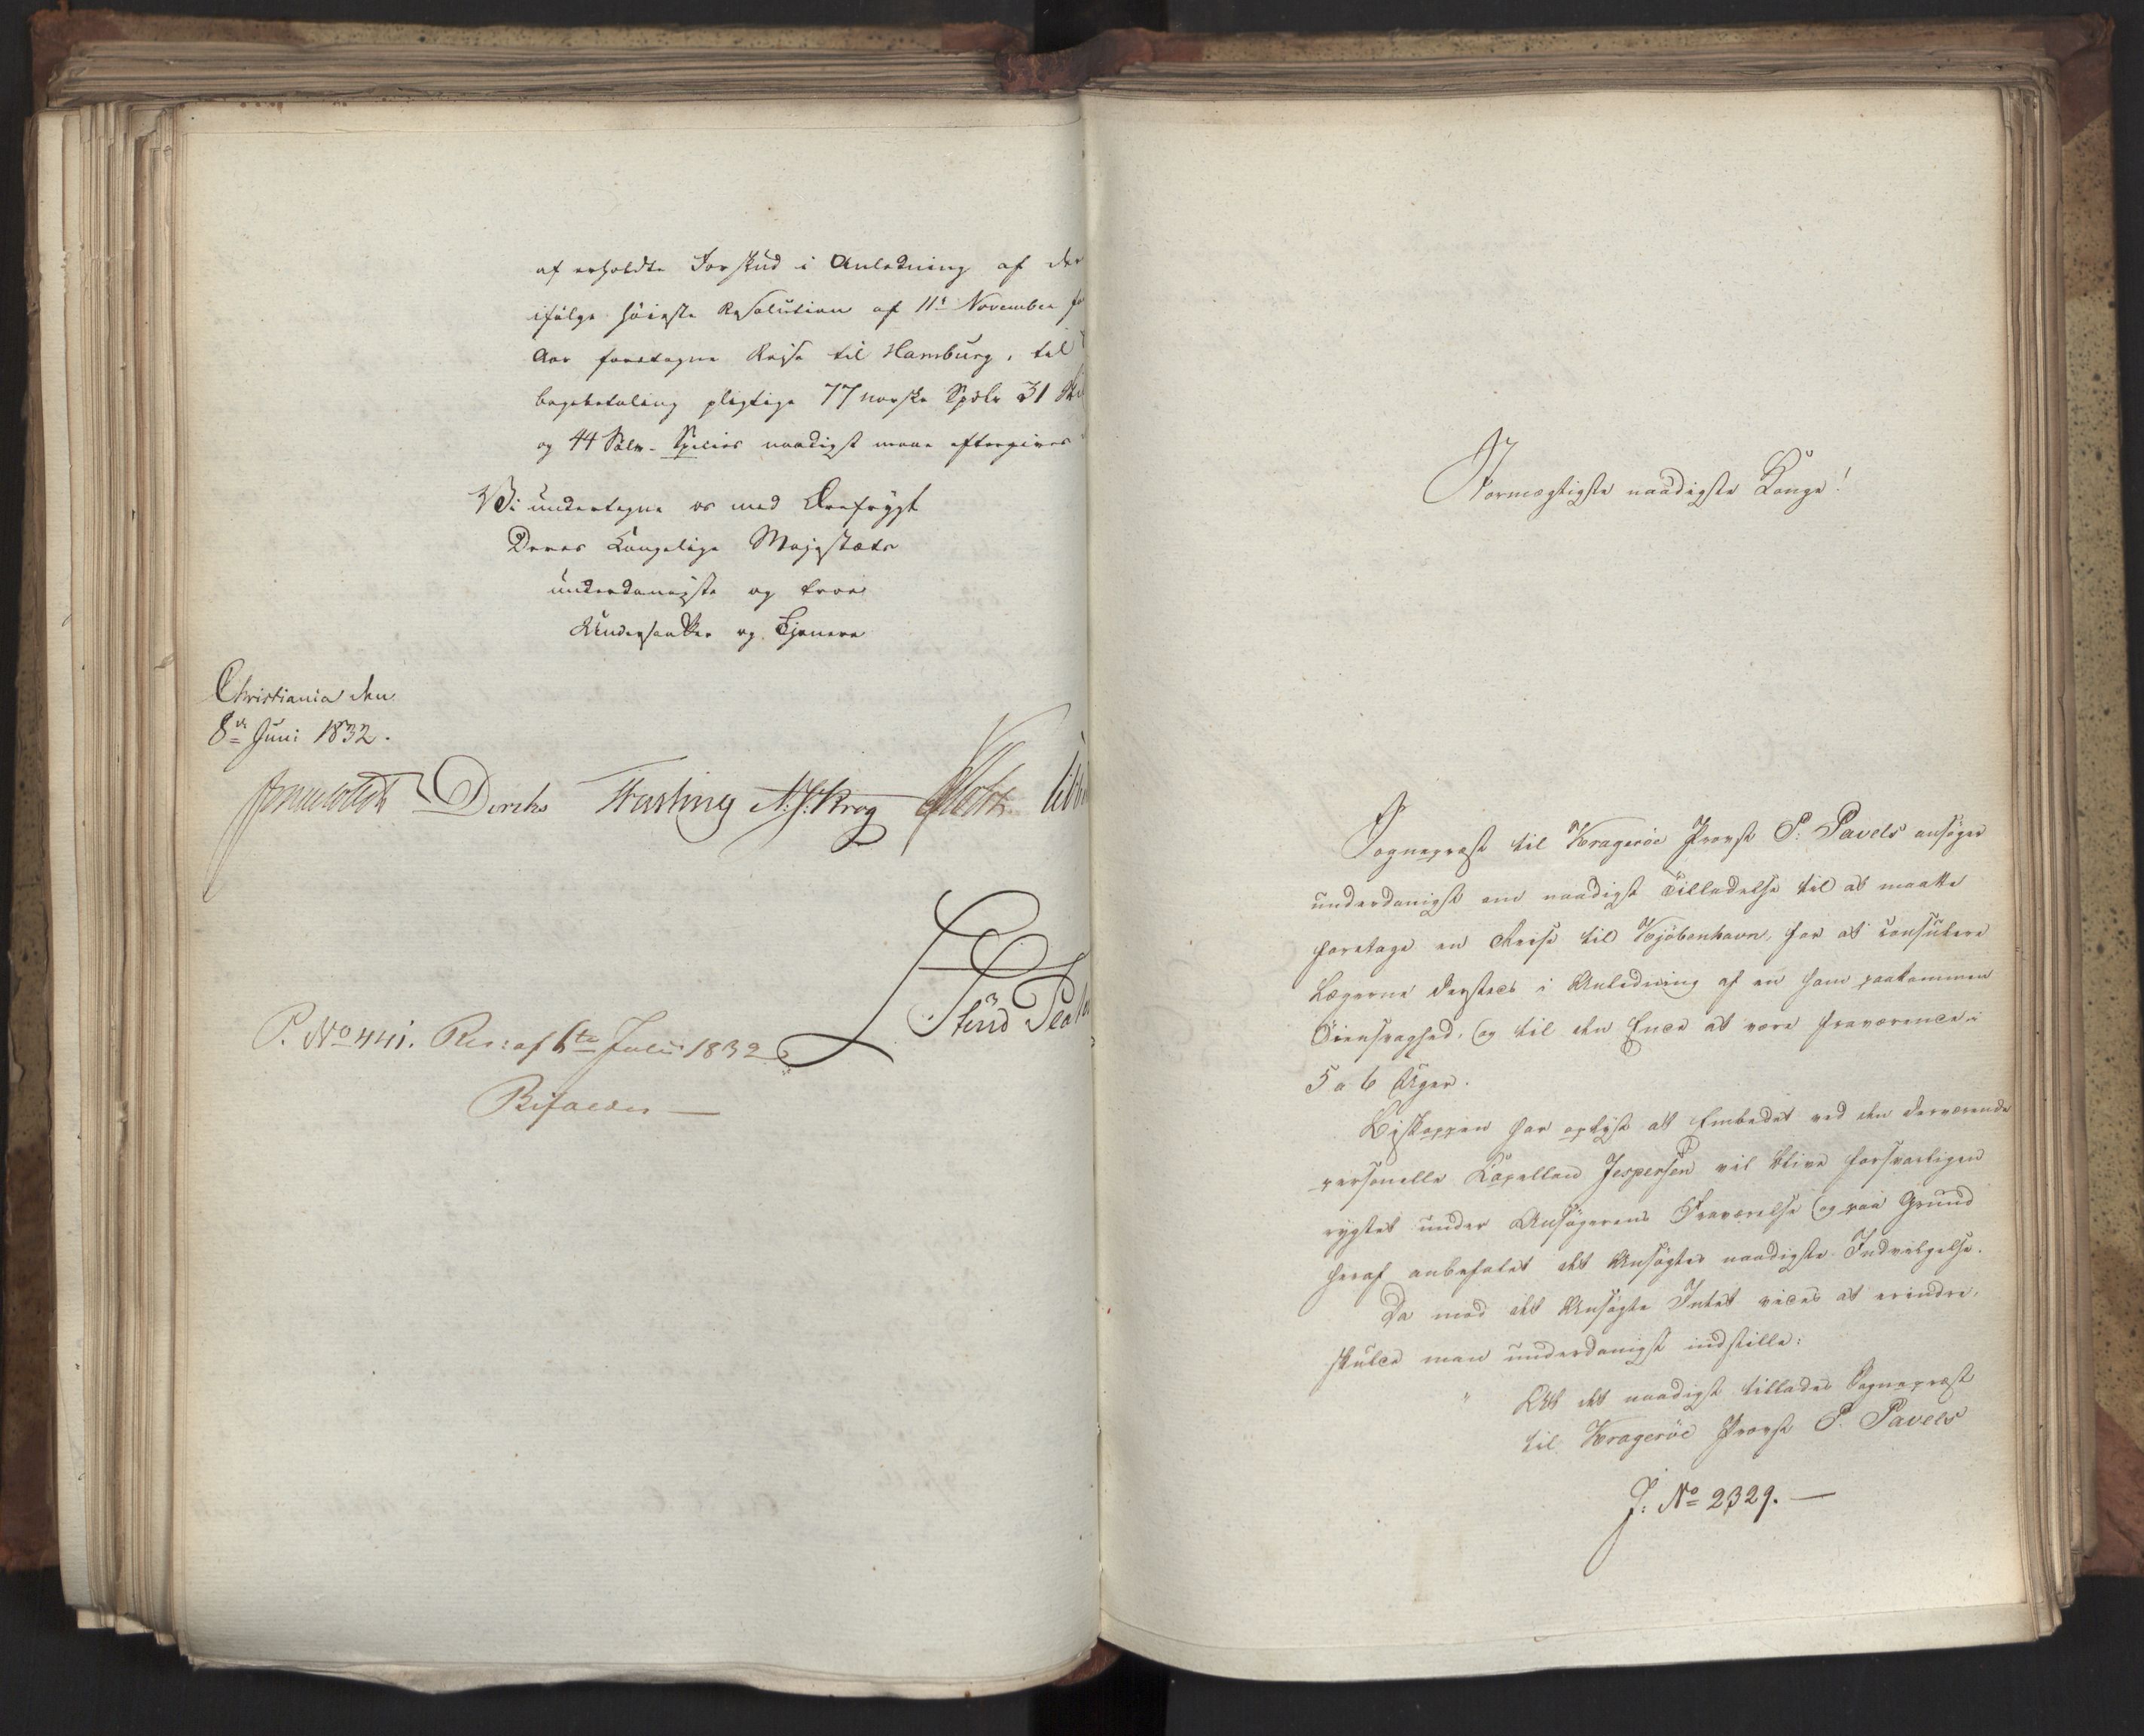 af erholdte Forskud i Anledning af den
ifølge høieste Resolution af 11te November f
Aar foretagne Reise til Hamburg, til
bagebetaling pligtige 77 norske Spdlr 31
og 44 Sølv-Species naadigst maae eftergives
Vi undertegne os med Ærefrygt
Deres Kongelige Majestæts
underdanigste og troe
Undersaatter og Tjenere
Christiania den
8de Juni 1832.
Diriks Fasting A. J. Krog
P. No 441. Res: af 6te Julii 1832
Bifaldes —
Stormægtigste naadigste Konge!
Sognepræst til Kragerøe Provst P. Pavels ansøger
underdanigst om naadigst Tilladelse til at maatte
foretage en Reise til Kjöbenhavn, for at consulere
Lægerne dersteds i Anledning af en ham paakommen
Öiensvaghed, og til den Ende at være fraværende i
5 a 6 Uger.
Biskoppen har oplyst at Embedet ved den derværende
personelle Capellan Jespersen vil blive forsvarligen
rygtet under Ansøgerens Fraværelse og paa Grund
heraf anbefalet det Ansøgtes naadigste Indvilgelse.
Da mod det Ansøgte Intet vides at erindre,
skulde man underdanigst indstille:
" At det naadigst tillades Sognepræst
til Kragerøe Provst P. Pavels
J: No 2329. —